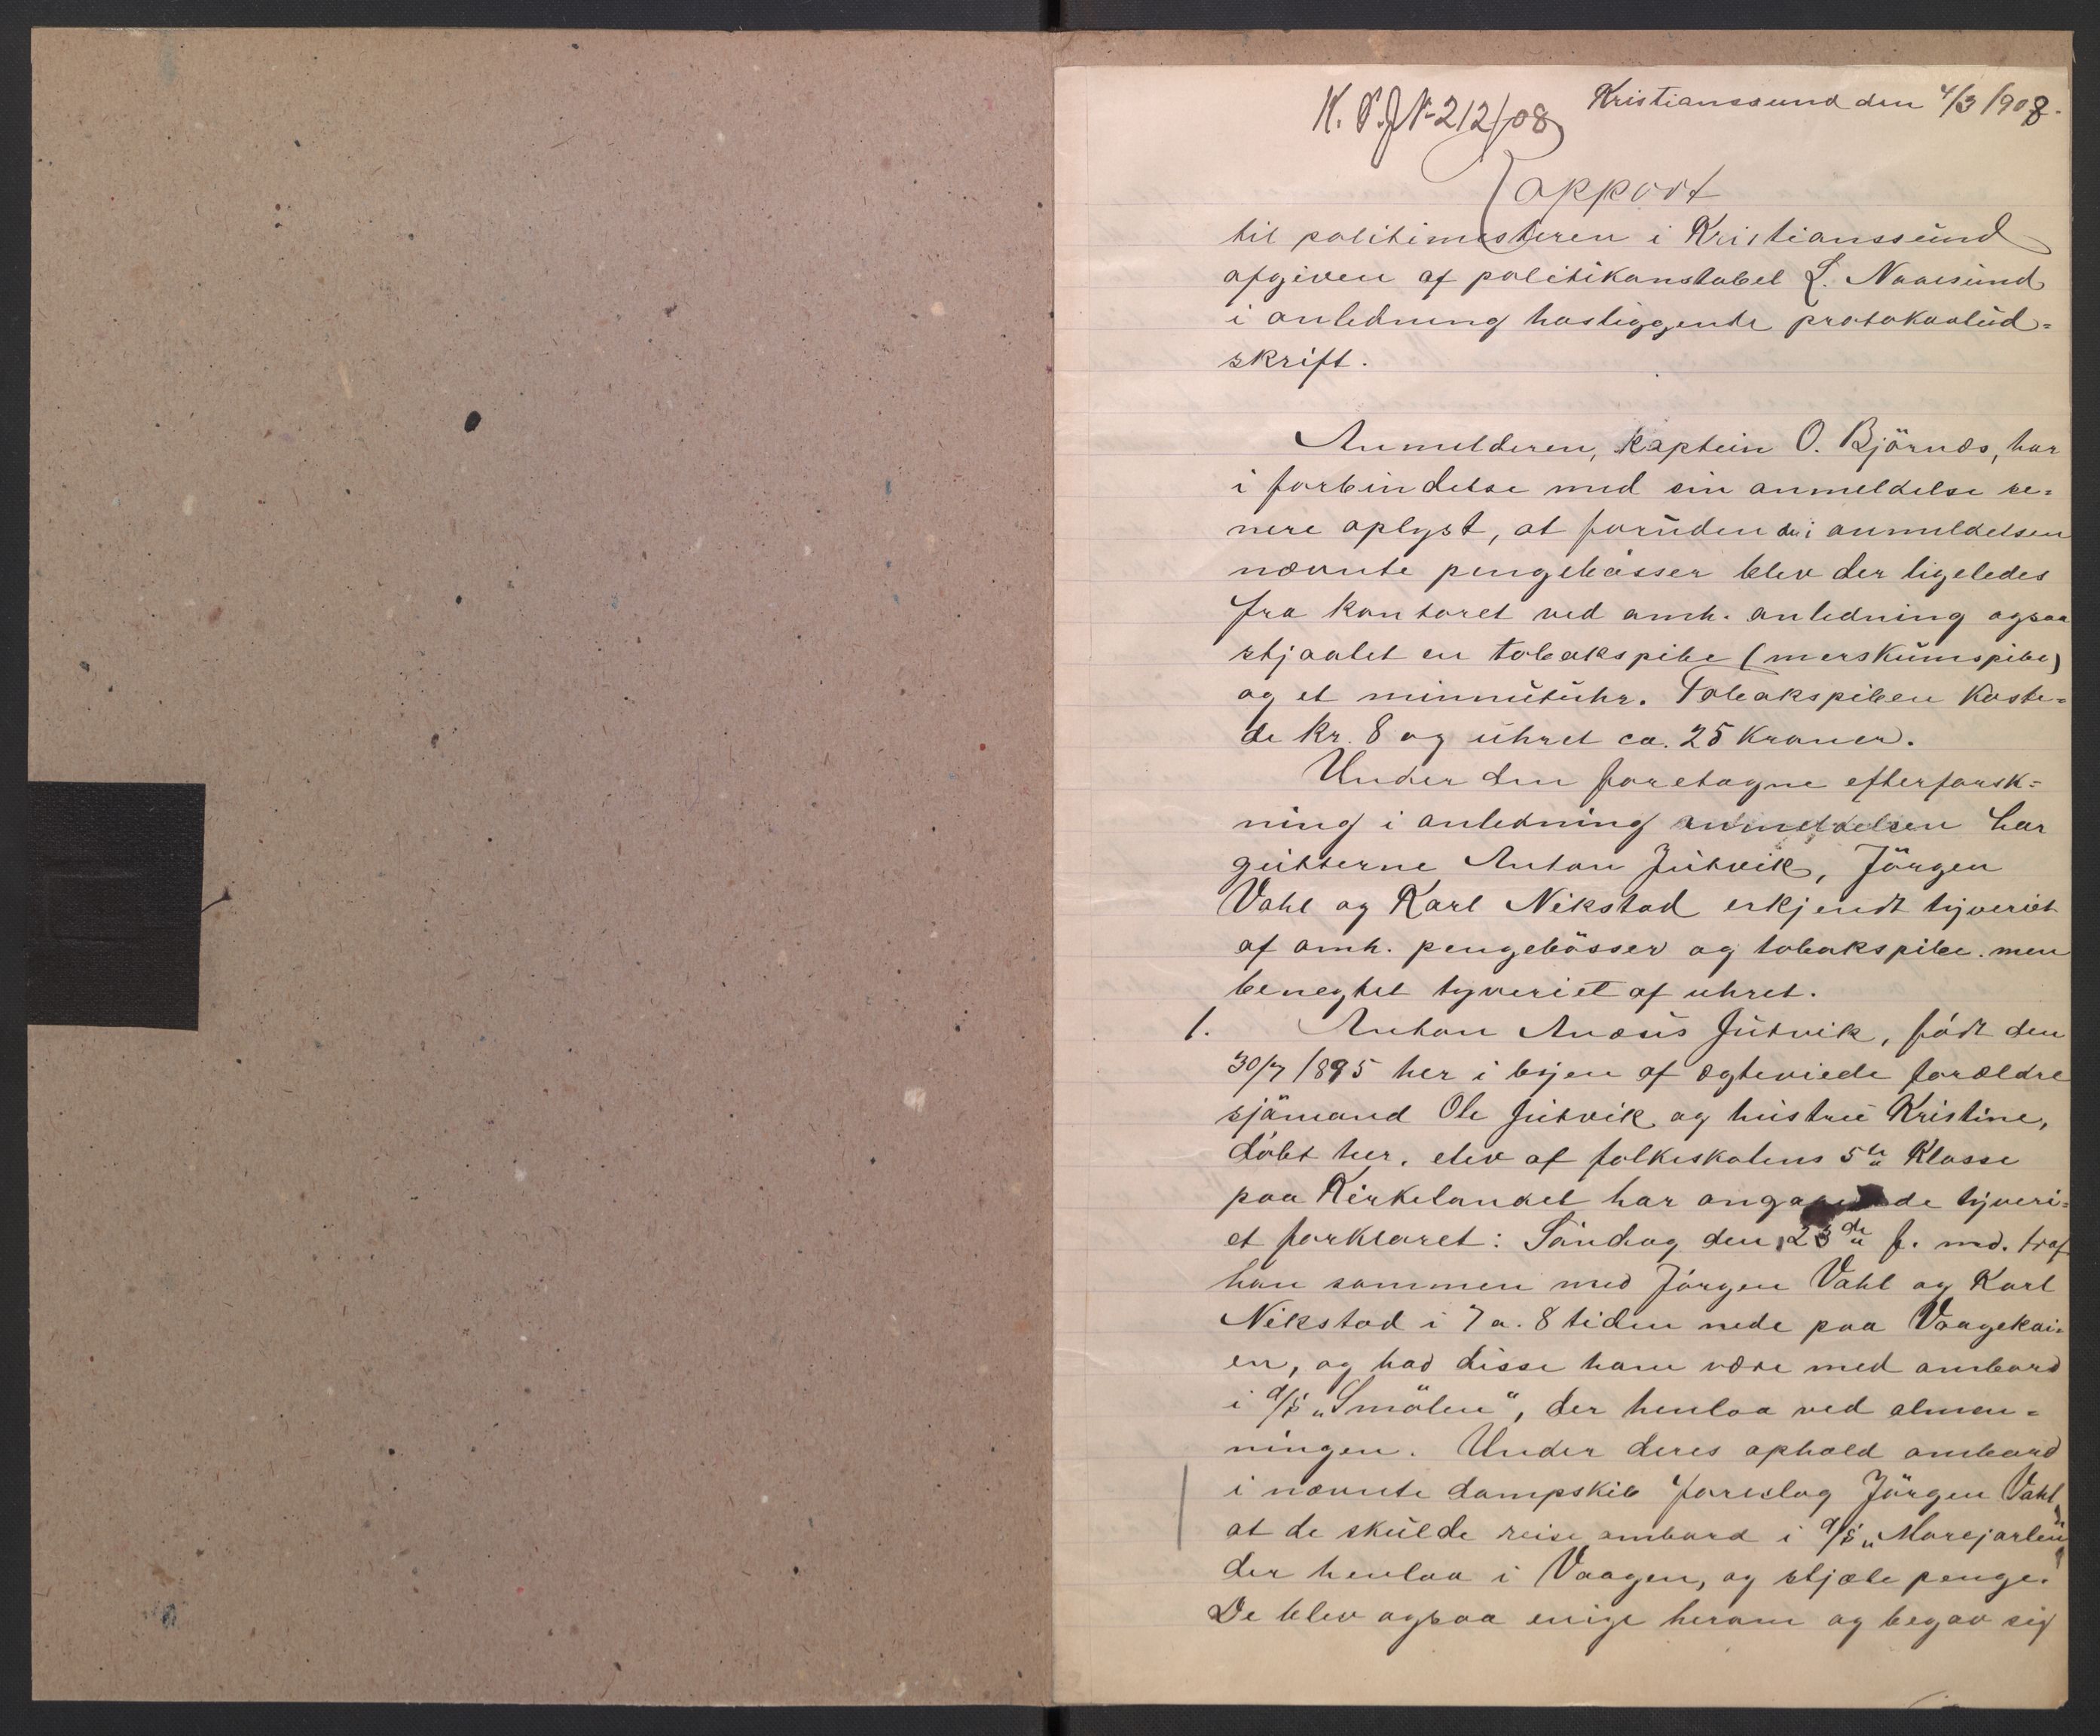 K. P. J. № 212/08
Kristianssund den 4/3 1908.
Rapport
til politimesteren i Kristianssund
afgiven af politikonstabel L. Naalsund
i anledning hosliggende protokoolud=
skrift.
Anmelderen, kaptein O. Björnæs, har
i forbindelse med sin anmeldelse se=
nere oplyst, at foruden de i anmeldelsen
nævnte pengebösser blev der ligeledes
fra kontoret ved omh. anledning ogsaa
stjaalet en tobakspibe (merskumspibe)
og et minnutuhr. Tobakspiben koste=
de kr. 8 og uhret ca. 25 kroner.
Under den foretagne efterforsk=
ning i anledning anmeldelsen har
gutterne Anton Jutvik, Jörgen
Vahl og Karl Nekstad erkjendt tyveriet
af omh. pengebösser og tobakspibe. men
benegtet tyveriet af uhret.
1. Anton Andæus Jutvik, födt den
30/7 1895 her i byen af ægteviede forældre
sjömand Ole Jutvik og hustru Kristine,
döbt her. elev af folkeskolens 5te klasse
paa Kirkelandet har angaaende tyveri=
et forklaret: Söndag den 23de f. md. traf
han sammen med Jörgen Vahl og Karl
Nekstad i 7 a. 8 tiden nede paa Vaagekai=
en, og bad disse ham være med ombord
i d/s „Smölen“, der henlaa ved almen=
ningen. Under deres ophold ombord
i nævnte dampskib foreslog Jörgen Vahl,
at de skulde reise ombord i d/s „Mørejarlen“,
der henlaa i Vaagen, og stjæle penge.
De blev ogsaa enige herom og begav sig